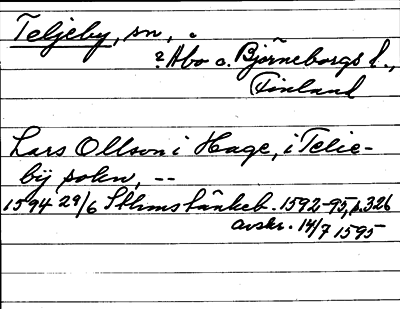 Teljeby, sn, .
? Abo o. Björneborgs l.,
Finland
Lars Ollson i Hage, i Telie-
bij sokn, --
1594 29/6 Sthms tänkeb. 1592-95, s. 326
avskr. 14/7 1595